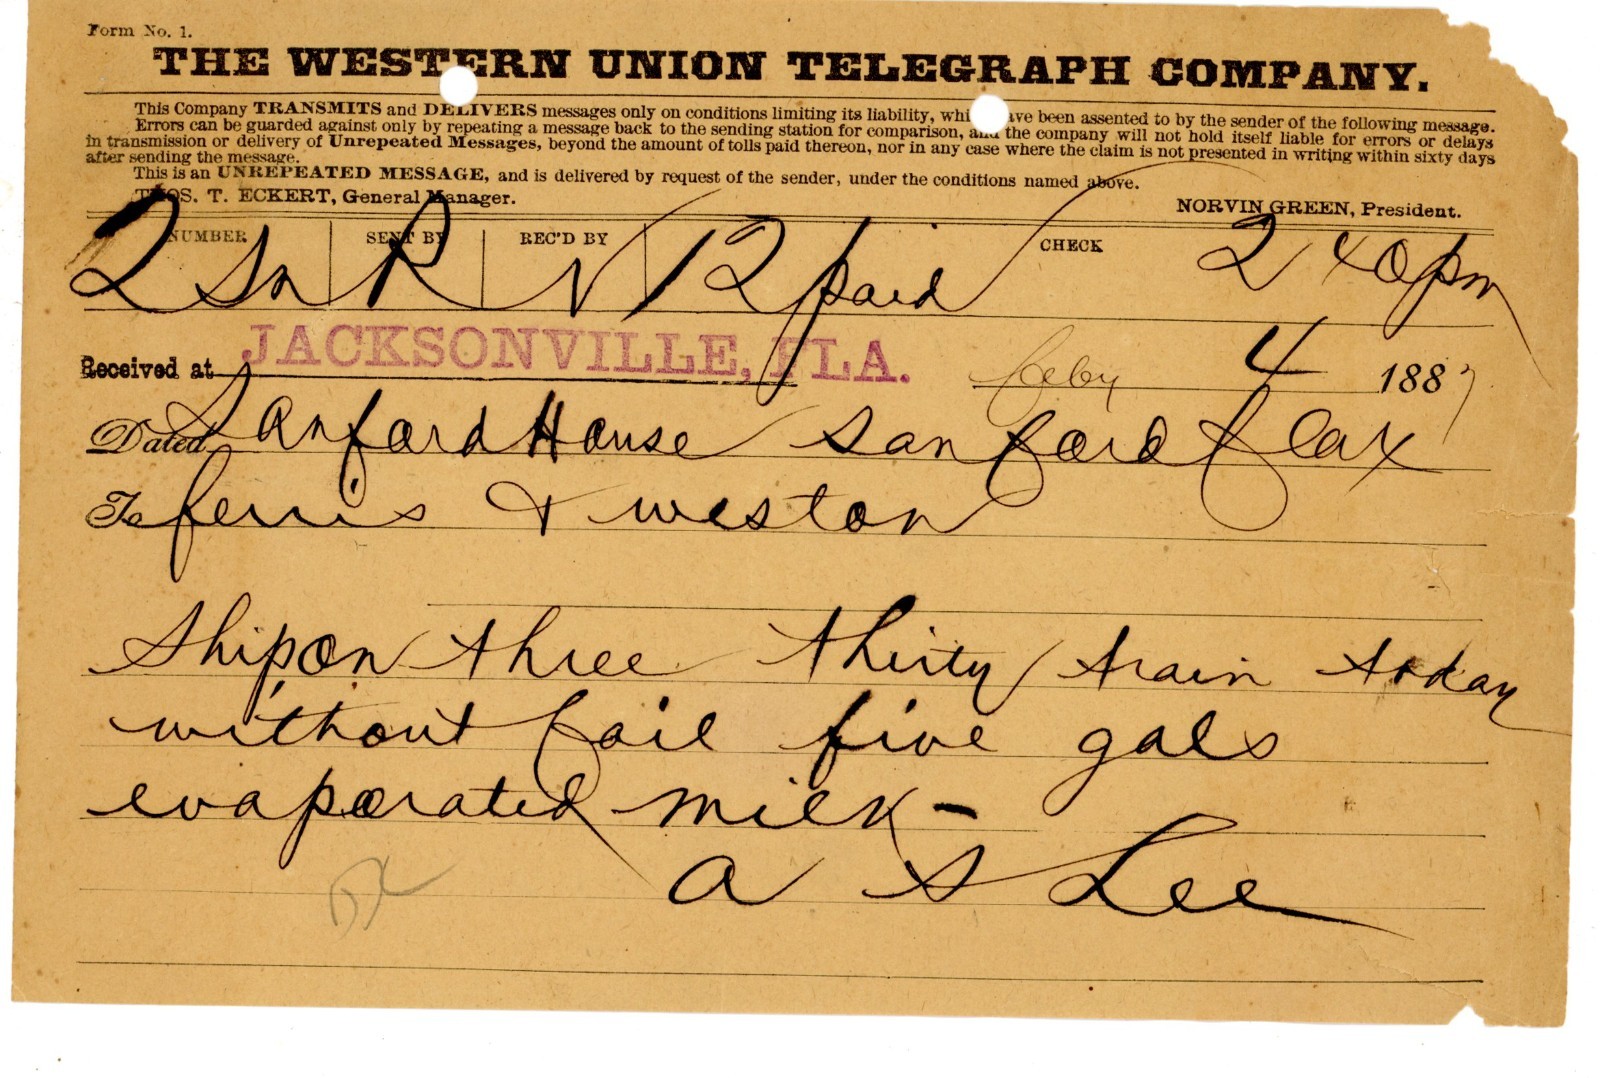 Form No. 1.
THE WESTERN UNION TELEGRAPH COMPANY.
This Company TRANSMITS and DELIVERS messages only on conditions limiting its liability, which have been assented to by the sender of the following message.
Errors can be guarded against only by repeating a message back to the sending station for comparison, and the company will not hold itself liable for errors or delays
in transmission or delivery of Unrepeated Messages, beyond the amount of tolls paid thereon, nor in any case where the claim is not presented in writing within sixty days
after sending the message.
This is an UNREPEATED MESSAGE, and is delivered by request of the sender, under the conditions named above.
THOS. T. ECKERT, General Manager.
NORVIN GREEN, President.
NUMBER SENT BY REC'D BY CHECK
2 Sn R N 12 paid 2 40 pm
Received at JACKSONVILLE, FLA. Feby 4 1887
Dated Sanford House Sanford fla x
To ferris & weston
Ship on three thirty train today
without fail five gals
evaporated milk -
A S Lee